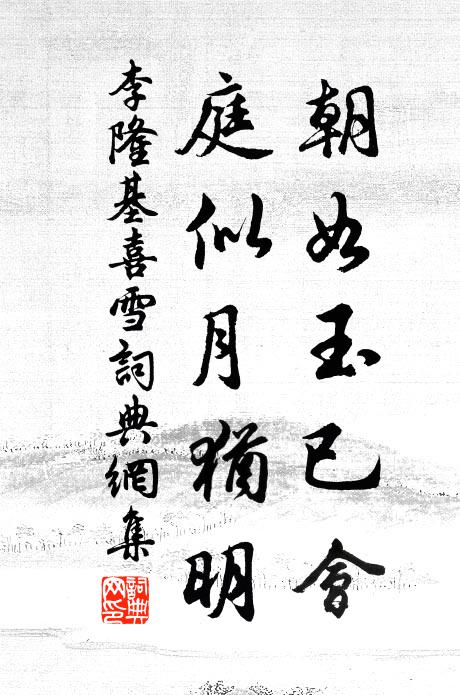 朝如玉已會
庭似月猶明
李隆基喜雪詞典網集
詞典网印